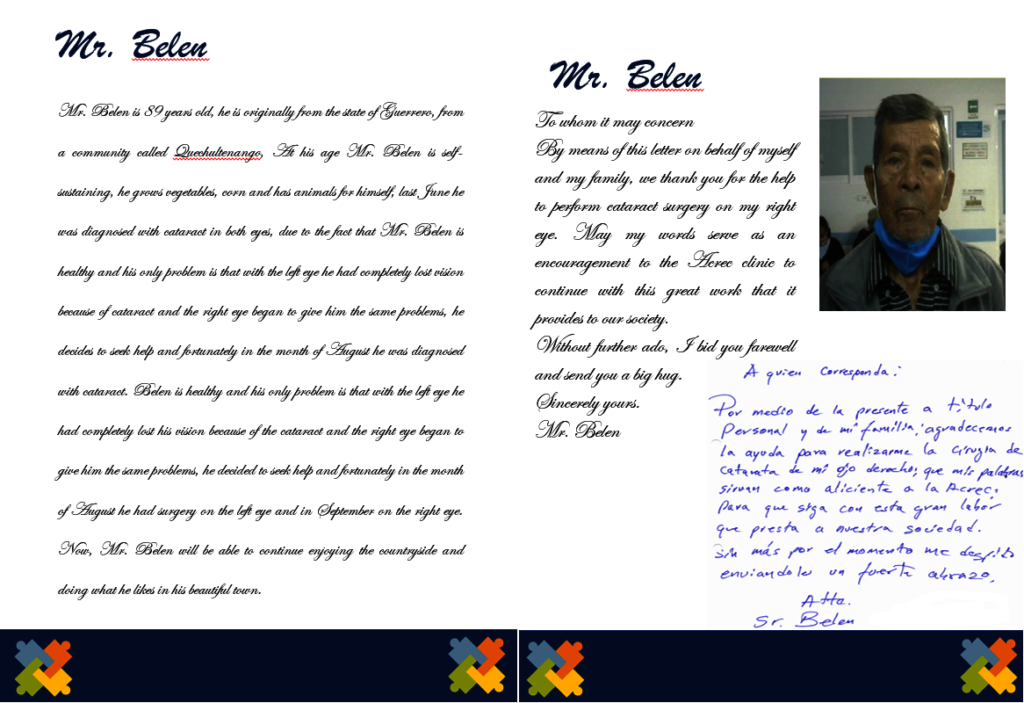 Mr. Belen
Mr. Belen is 89 years old, he is originally from the state of Guerrero, from
a community called Quechultenango, At his age Mr. Belen is self-
sustaining, he grows vegetables, corn and has animals for himself, last June he
was diagnosed with cataract in both eyes, due to the fact that Mr. Belen is
healthy and his only problem is that with the left eye he had completely lost vision
because of cataract and the right eye began to give him the same problems, he
decides to seek help and fortunately in the month of August he was diagnosed
with cataract. Belen is healthy and his only problem is that with the left eye he
had completely lost his vision because of the cataract and the right eye began to
give him the same problems, he decided to seek help and fortunately in the month
of August he had surgery on the left eye and in September on the right eye.
Now, Mr. Belen will be able to continue enjoying the countryside and
doing what he likes in his beautiful town.
Mr. Belen
To whom it may concern
By means of this letter on behalf of myself
and my family, we thank you for the help
to perform cataract surgery on my right
eye. May my words serve as an
encouragement to the Acrec clinic to
continue with this great work that it
provides to our society.
Without further ado, I bid you farewell
and send you a big hug.
Sincerely yours.
Mr. Belen
A quien corresponda:
Por medio de la presente a titulo
Personal y de mi familia, agradecemos
la ayuda para realizarme la cirugia de
catarata de mi ojo derecho; que mis palabras
sirvan como aliciente a la Acrec.
para que siga con esta gran labor
que presta a nuestra sociedad.
Sin más por el momento me despido
enviandoles un fuerte abrazo.
Atta.
Sr. Belen